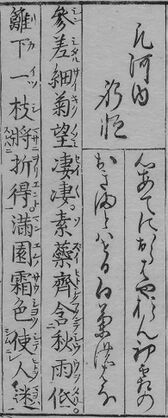 凡河内
躬恒
心あてにおらはやおらん初霜の
おきまとはせる白菊の花
參差細菊望凄凄。素蘂齊含秋雨低
籬下一枝將折得滿園霜色使人迷